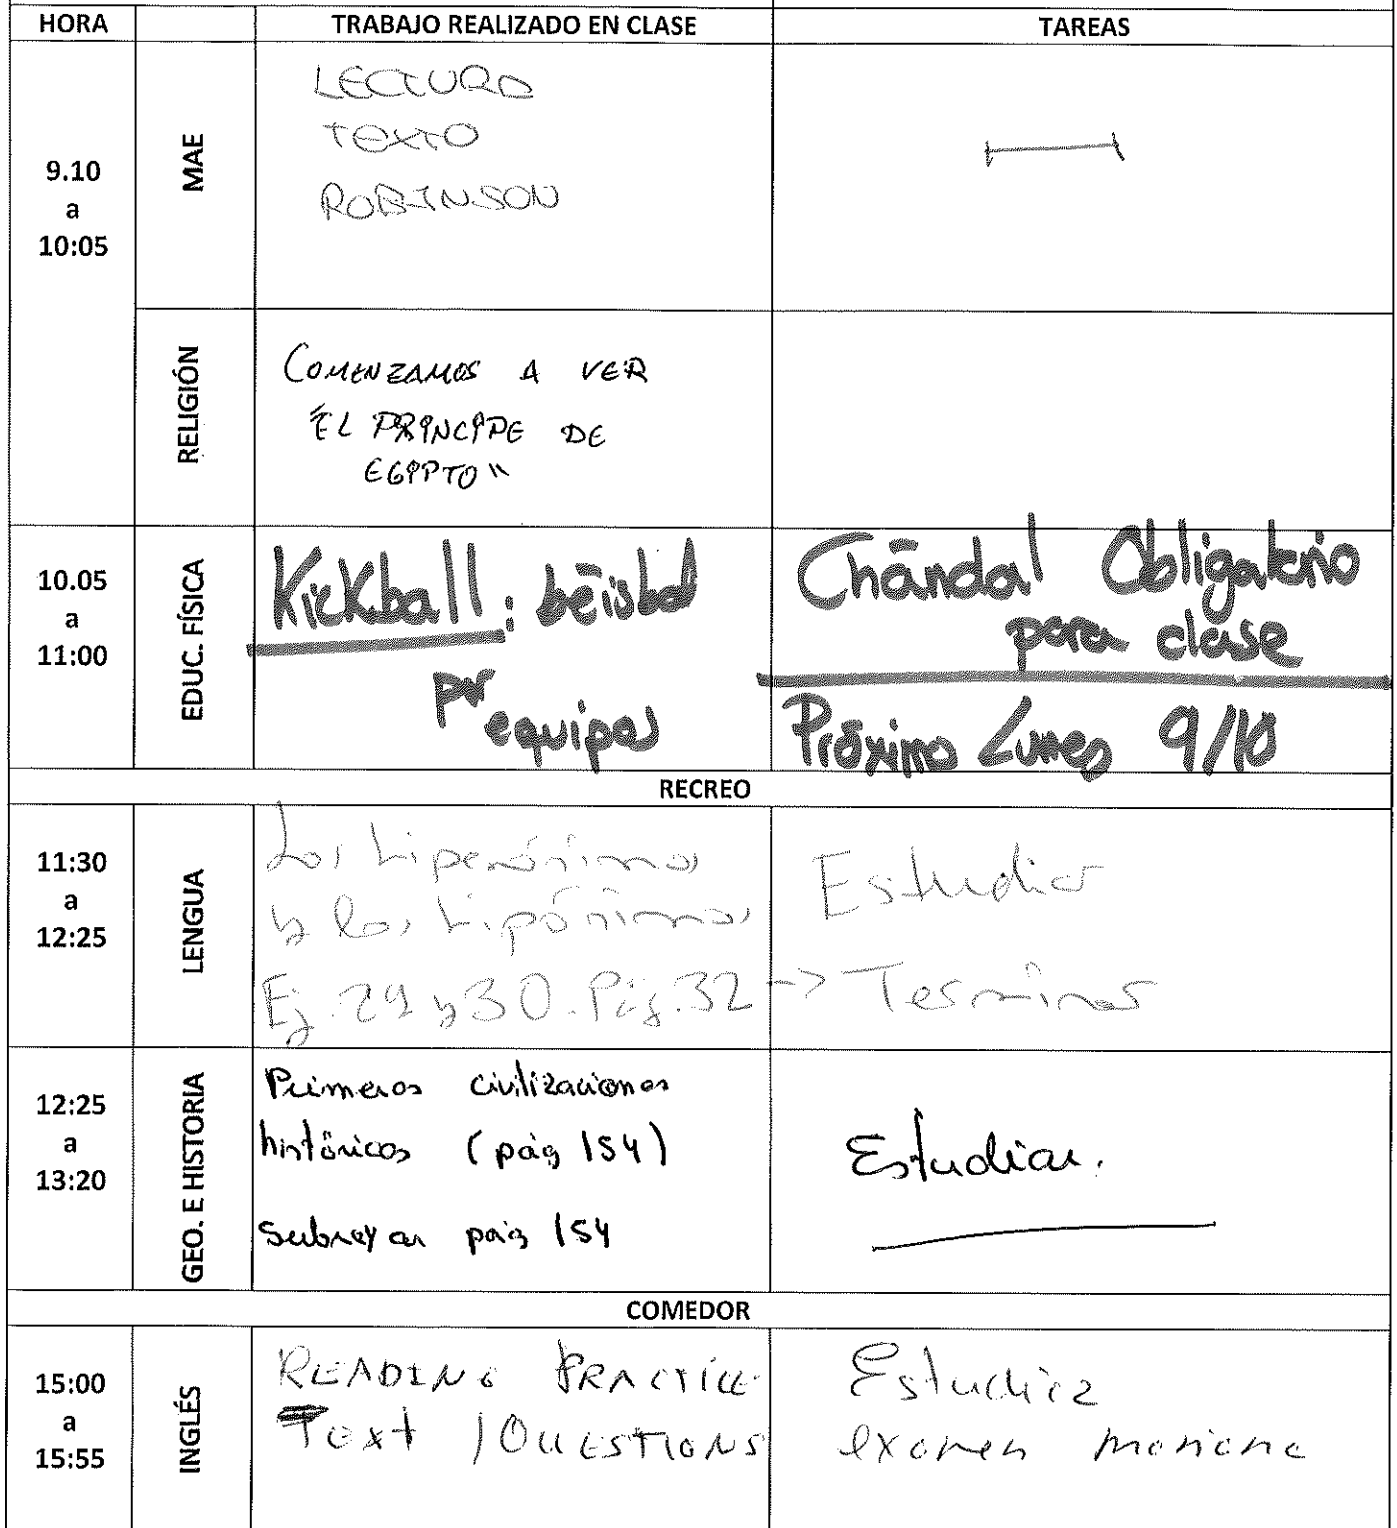 HORA TRABAJO REALIZADO EN CLASE TAREAS
9.10
a
10:05
MAE
LECTURA
TEXTO
ROBINSON
RELIGIÓN
COMENZAMOS A VER
"EL PRÍNCIPE DE
EGIPTO"
10.05
a
11:00
EDUC. FÍSICA
Kickball: béisbol
por
equipos
Chándal Obligatorio
para clase
Próximo Lunes 9/10
RECREO
11:30
a
12:25
LENGUA
Los hiperónimos
y los hipónimos
Ej. 29 y 30. Pág. 32 -> Terminar
Estudiar
12:25
a
13:20
GEO. E HISTORIA
Primeras civilizaciones
históricas (pág 154)
Subrayar pág 154
Estudiar.
COMEDOR
15:00
a
15:55
INGLÉS
READING PRACTICE
TEXT / QUESTIONS
Estudiar
examen mañana